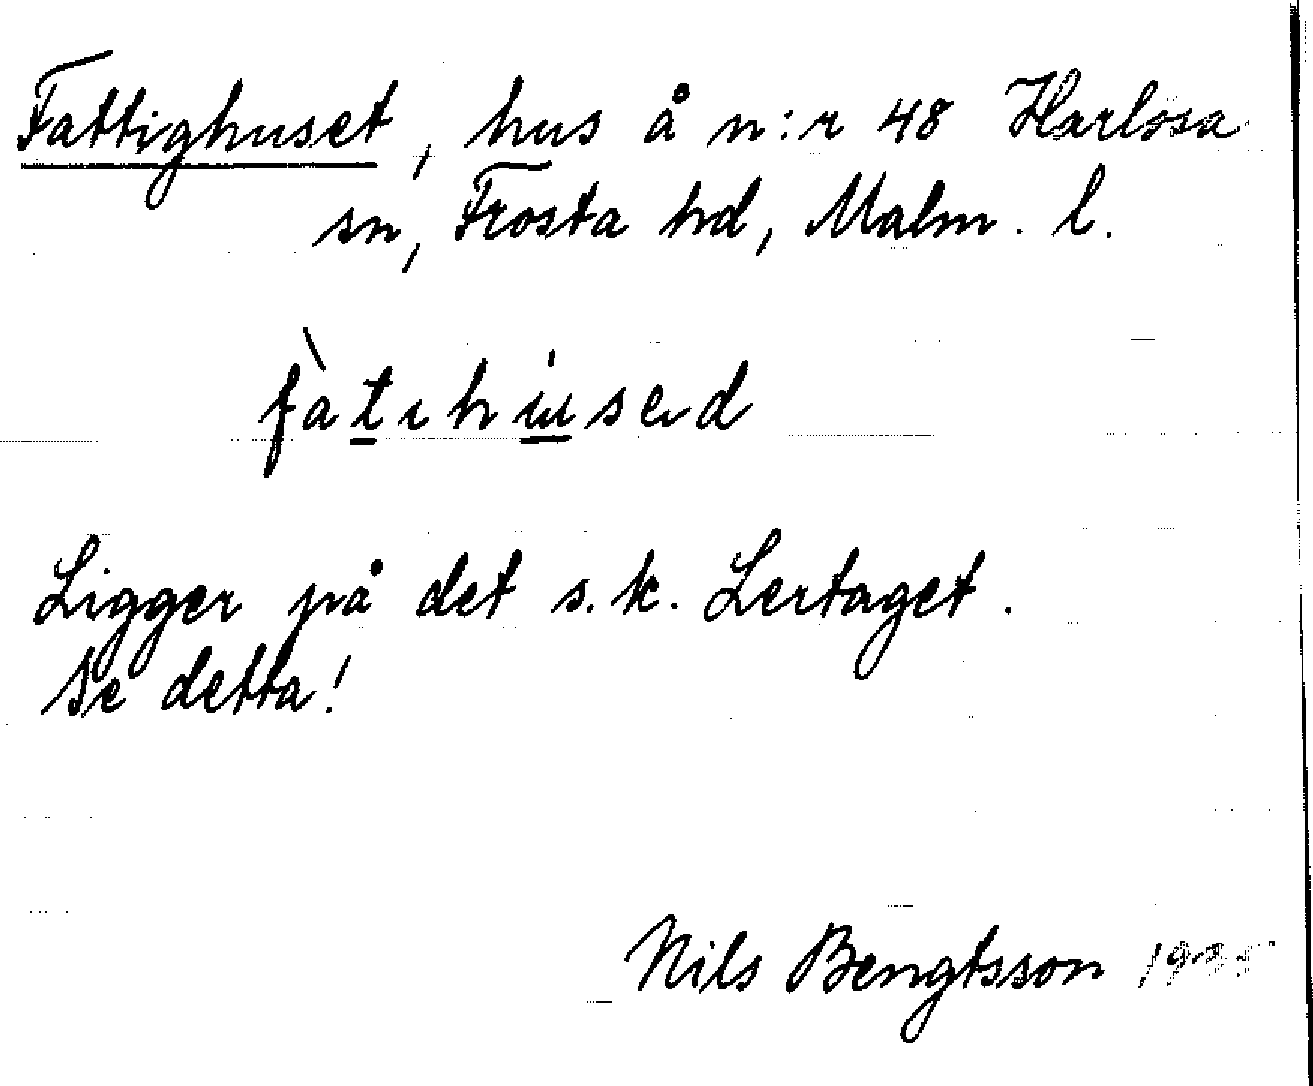 Fattighuset, hus å n:r 48 Harlösa
sn, Frosta hd, Malm. l.
fàtıhúsed
Ligger på det s.k. Lertaget.
Se detta!
Nils Bengtsson 1935